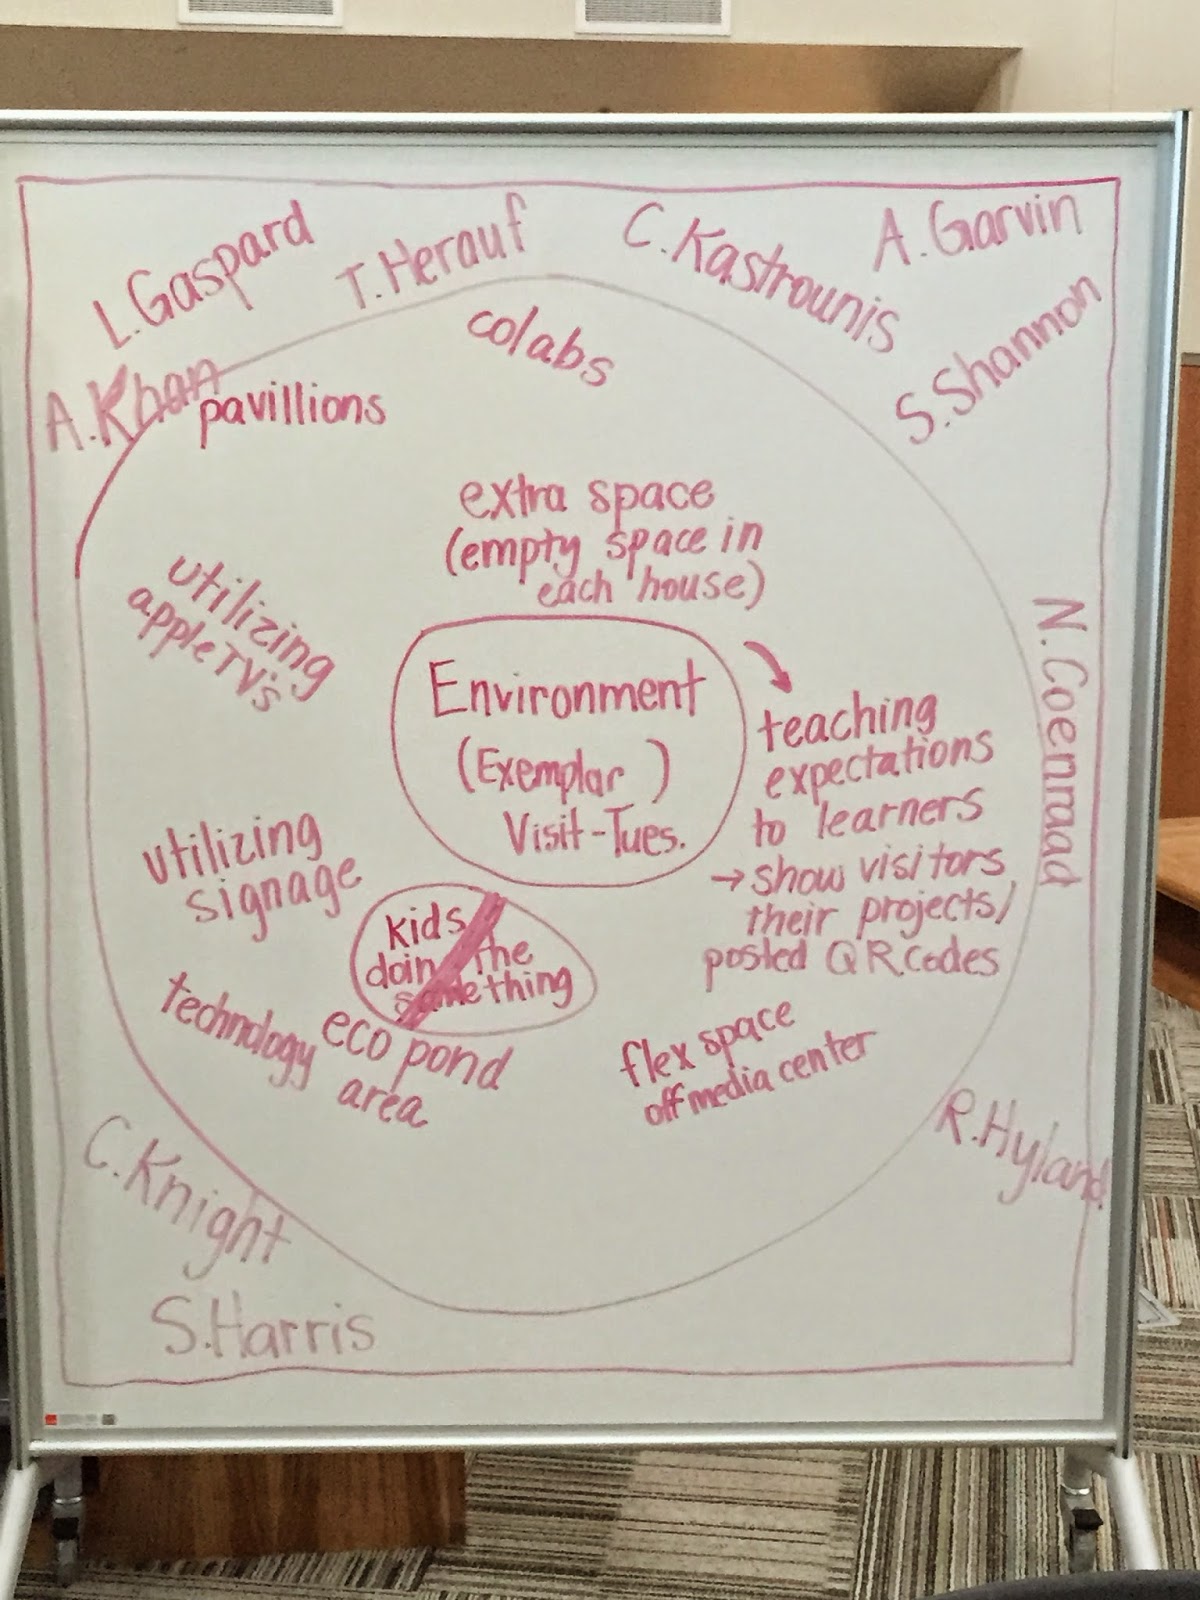 L.Gaspard
T.Herauf
C.Kastrounis
A.Garvin
S.Shannon
A.Khan
colabs
pavillions
extra space
(empty space in
each house)
utilizing
apple TV's
Environment
(Exemplar )
Visit-Tues.
teaching
expectations
to learners
→ show visitors
their projects/
posted QR codes
N.Coenraad
utilizing
signage
kids
doin the
same thing
technology
area
eco pond
flex space
off media center
R.Hyland
C.Knight
S.Harris